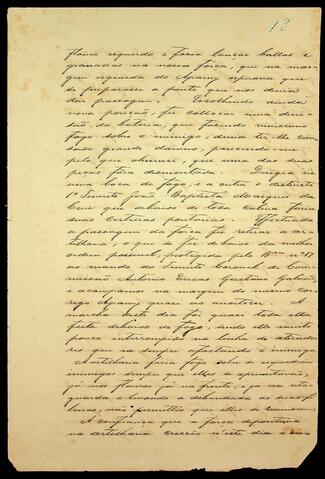 18
flanco esquerdo e fazia lançar ballas e
granadas na nossa força, que na mar-
gem esquerda do Apamy esperava que
se preparasse a ponte que nos devia
dar passagem. Escolhendo ainda
nova posição, fiz collocar uma divi-
são da bateria, que fazendo vivissimo
fogo sobre o inimigo, devia ter-lhe cau-
sado grande damno, parecendo-me
pelo que observei, que uma das suas
peças fora desmontada. Dirigia
uma boca de fogo, e a outra o distincto
1º Tenente João Baptista Marques da
Cruz que debaixo de toda calma fazia
suas certeiras pontarias. Effectuada
a passagem da força fiz retirar a ar-
tilharia, o que se fez debaixo da melhor
ordem possivel, protegida pelo Bam nº 17
ao mando do Tenente Coronel de Com-
missão Antonio Enéas Gustavo Galvão,
e acampamos na margem do mesmo cor-
rego Apamy quasi ao anoitecer. A
marcha deste dia foi quasi toda ella
feita debaixo de fogo, sendo ella muito
pouco interrompida na linha de atirado-
res que ia sempre afugentando o inimigo.
A artilharia fazia fogo sobre os esquadrões
inimigos sempre que elles se apresentavão,
já nos flancos, já na frente, e já na reta-
guarda e levando a debandada as suas fi-
leiras, não permittia que elles se reunissem.
A confiança que a força depositava
na artilharia cresceo n'este dia a